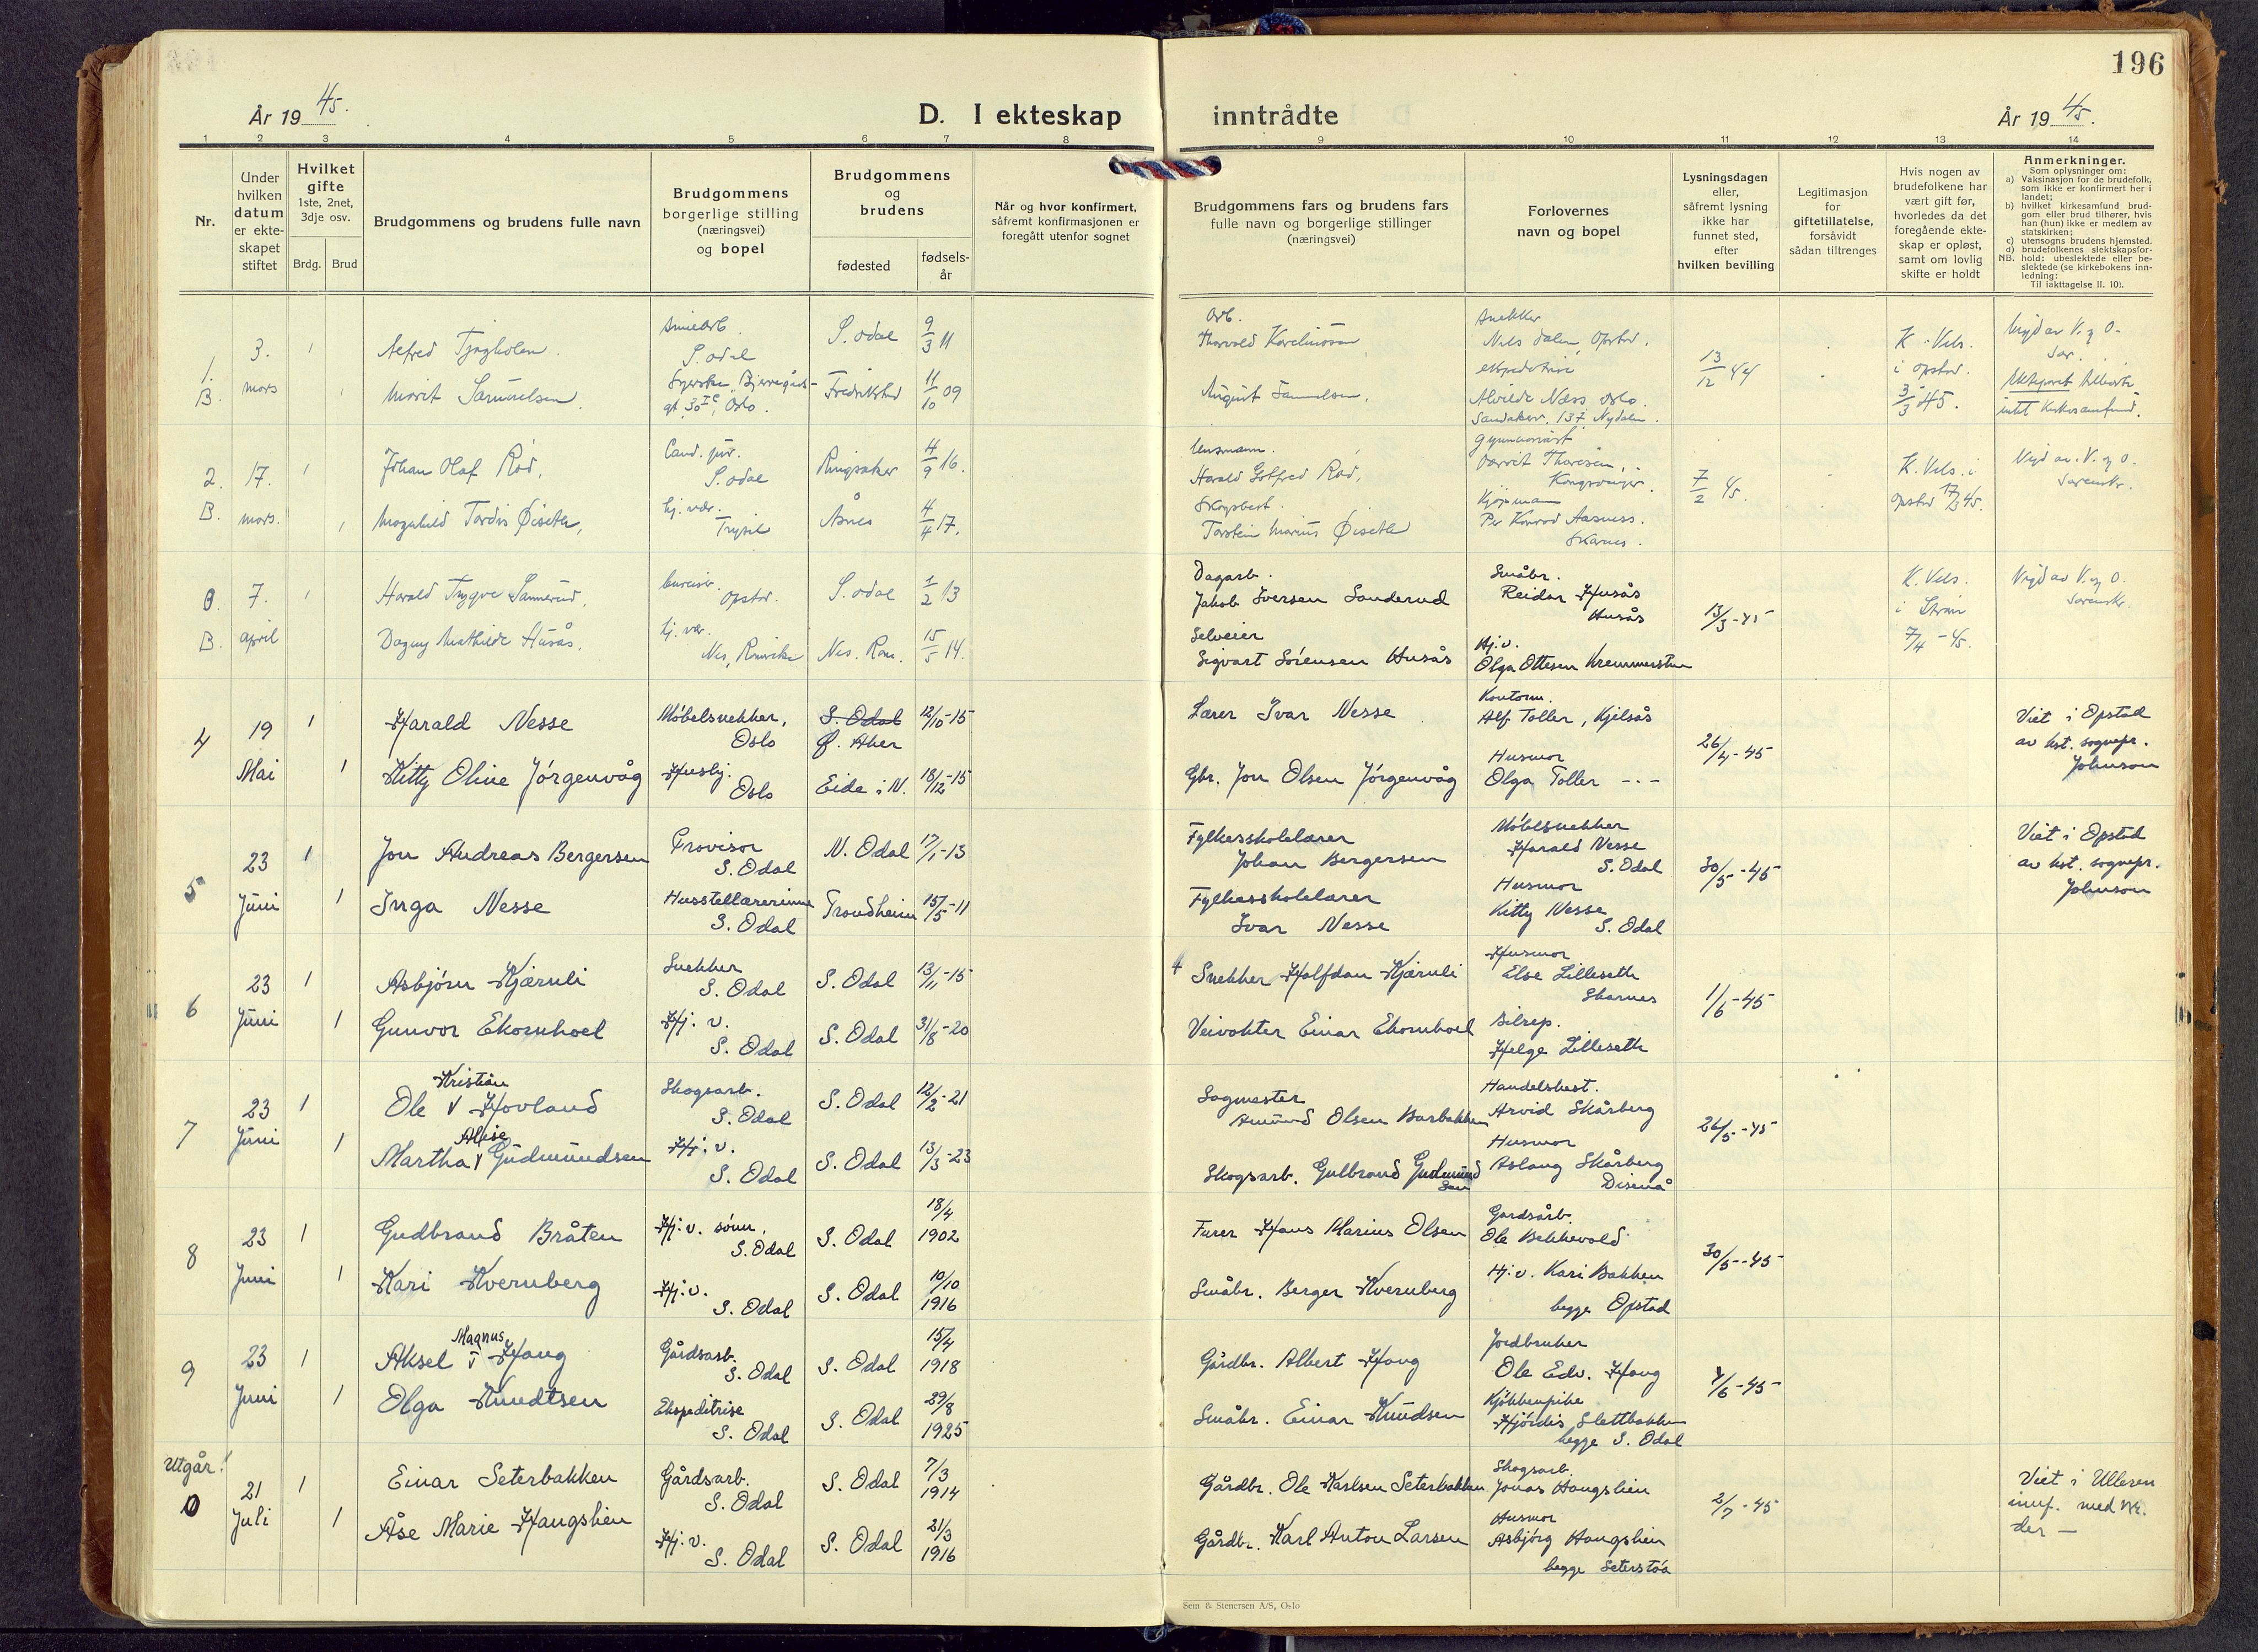 196
År 1945.
D. I ekteskap inntrådte
År 1945.
1 2 3 4 5 6 7 8 9 10 11 12 13 14
Nr.
Under hvilken datum er ekteskapet stiftet
Hvilket gifte 1ste, 2net, 3dje osv.
Brdg. Brud
Brudgommens og brudens fulle navn
Brudgommens borgerlige stilling (næringsvei) og bopel
Brudgommens og brudens
fødested
fødsels-år
Når og hvor konfirmert, såfremt konfirmasjonen er foregått utenfor sognet
Brudgommens fars og brudens fars fulle navn og borgerlige stillinger (næringsvei)
Forlovernes navn og bopel
Lysningsdagen eller, såfremt lysning ikke har funnet sted, efter hvilken bevilling
Legitimasjon for giftetillatelse, forsåvidt sådan tiltrenges
Hvis nogen av brudefolkene har vært gift før, hvorledes da det foregående ekteskap er opløst, samt om lovlig skifte er holdt
Anmerkninger.
Som oplysninger om:
a) Vaksinasjon for de brudefolk, som ikke er konfirmert her i landet;
b) hvilket kirkesamfund brudgom eller brud tilhører, hvis han (hun) ikke er medlem av statskirken;
c) utensogns brudens hjemsted.
d) brudefolkenes slektskapsforhold: ubeslektede eller beslektede (se kirkebokens innledning:
NB.
Til iakttagelse II. 10).
1. B. 3. mars 1
Alfred
S. odal
S. odal 9/3 11
Thorvald
Nils Dalen, Opstad.
13/12 44
K. Vels. i Opstad. 3/3 45.
1 Marit Samuelsen
Oslo.
Fredrikstad 11/10 09
August Samuelsen.
Alvilde Næss Oslo.
Nydalen.
2. B. 17. mars. 1
Johan Olaf Rød,
Cand. jur. S. odal
Ringsaker 4/9 16.
Harald Gotfred Rød,
Kongsvinger.
7/2 45.
K. Vels. i Opstad 17/3 45.
1 Magnhild Tordis Øiseth,
hj. vær. Trysil
Åsnes 4/4 17.
Torstein Marius Øiseth
Kjøpmann
Per Konrad Aasness. Skarnes.
B. 7. april 1
Harald Trygve Sannerud,
Opstad.
S. odal 1/2 13
Dagarb.
Jakob Iversen Sanderud
Småbr.
Reidar Husås
Husås
13/3-45
K. Vels. i Strøm 7/4-45.
Dagny Mathilde Husås,
hj. vær.
Nes, Romerike
Nes. Rom. 15/5 14.
Selveier
Sigvart Sørensen Husås
Hj. v.
Olga Ottesen
4 19 Mai 1
Harald Nesse
Møbelsnekker, Oslo
S. Odal
Ø. Aker
12/10-15
Lærer Ivar Nesse
Kontorm.
Alf Toller, Kjelsås
26/4-45
Viet i Opstad
av kst. sognepr.
Johnson
1 Kitty Oline Jørgenvåg
Husbj. Oslo
Eide i N. 18/12-15
Gbr. Jon Olsen Jørgenvåg
Husmor
Olga Toller -"-
5 23 Juni 1
Jon Andreas Bergersen
Provisor
S. Odal
N. Odal 17/1-13
Fylkesskolelærer
Johan Bergersen
Møbelsnekker
Harald Nesse
S. Odal
30/5-45
Viet i Opstad
av kst. sognepr.
Johnson
1 Inga Nesse
Husstellærerinne
S. Odal
Trondheim 15/5-11
Fylkesskolelærer
Ivar Nesse
Husmor
Kitty Nesse
S. Odal
6 23 Juni 1
Asbjørn Kjærnli
Snekker
S. Odal
S. Odal 13/11-15
Snekker Halfdan Kjærnli
Husmor
Else Lilleseth
Skarnes
1/6-45
1 Gunvor Ekornhoel
Hj. v.
S. Odal
S. Odal 31/8-20
Veivokter Einar Ekornhoel
Bilrep.
Helge Lilleseth
7 23 Juni 1
Kristian
Ole V Hovland
Skogsarb.
S. Odal
S. Odal 12/2-21
Sagmester
Amund Olsen Barbakken
Handelsbest.
Arvid Skårberg
26/5-45
Alise
1 Martha V Gudmundsen
Hj. v.
S. Odal
S. Odal 13/3-23
Skogsarb. Gulbrand Gudmundsen
Husmor
Aslaug Skårberg
Disenå
8 23 Juni 1
Gudbrand Bråten
Hj. v. sønn.
S. Odal
S. Odal 18/4 1902
Furer Hans Marius Olsen
Gardsarb.
Ole Bekkevold
30/5-45
1 Kari Kvernberg
Hj. v.
S. Odal
S. Odal 10/10 1916
Småbr. Berger Kvernberg
Hj. v. Kari Bakken
begge Opstad
9 23 Juni 1
Magnus
Aksel V Haug
Gårdsarb.
S. Odal
S. Odal 15/4 1918
Gårdbr. Albert Haug
Jordbruker
Ole Edv. Haug
4/6-45
1 Olga Knudtsen
Ekspeditrise
S. Odal
S. Odal 29/8 1925
Småbr. Einar Knudsen
Kjøkkenpike
Hjördis Slettbakken
begge S. Odal
Utgår!
0 21 Juli 1
Einar Seterbakken
Gårdsarb.
S. Odal
S. Odal 7/3 1914
Gårdbr. Ole Karlsen Seterbakken
Skogsarb.
Jonas Haugslien
2/7-45
Viet i Ulleren
innf. med nr.
der —
1 Åse Marie Haugslien
Hj. v.
S. Odal
S. Odal 21/3 1916
Gårdbr. Karl Anton Larsen
Husmor
Asbjørg Haugslien
begge Seterstøa
Sem & Stenersen A/S, Oslo